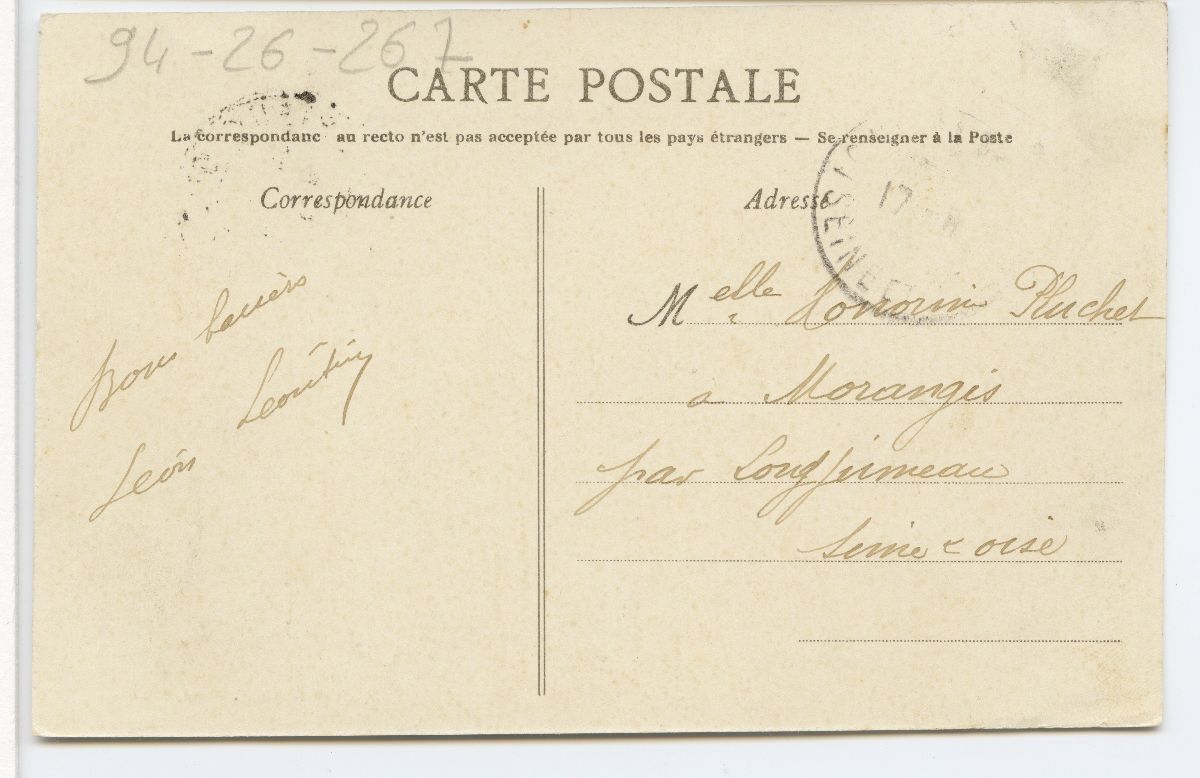 94-26-267
CARTE POSTALE
La correspondanc au recto n'est pas acceptée par tous les pays étrangers — Se renseigner à la Poste
Correspondance
Adresse
17
SEINE ET
Bons baisers
Léontin
Léon
Melle Honorine Pluchet
a Morangis
par Longjumeau
Seine & oise